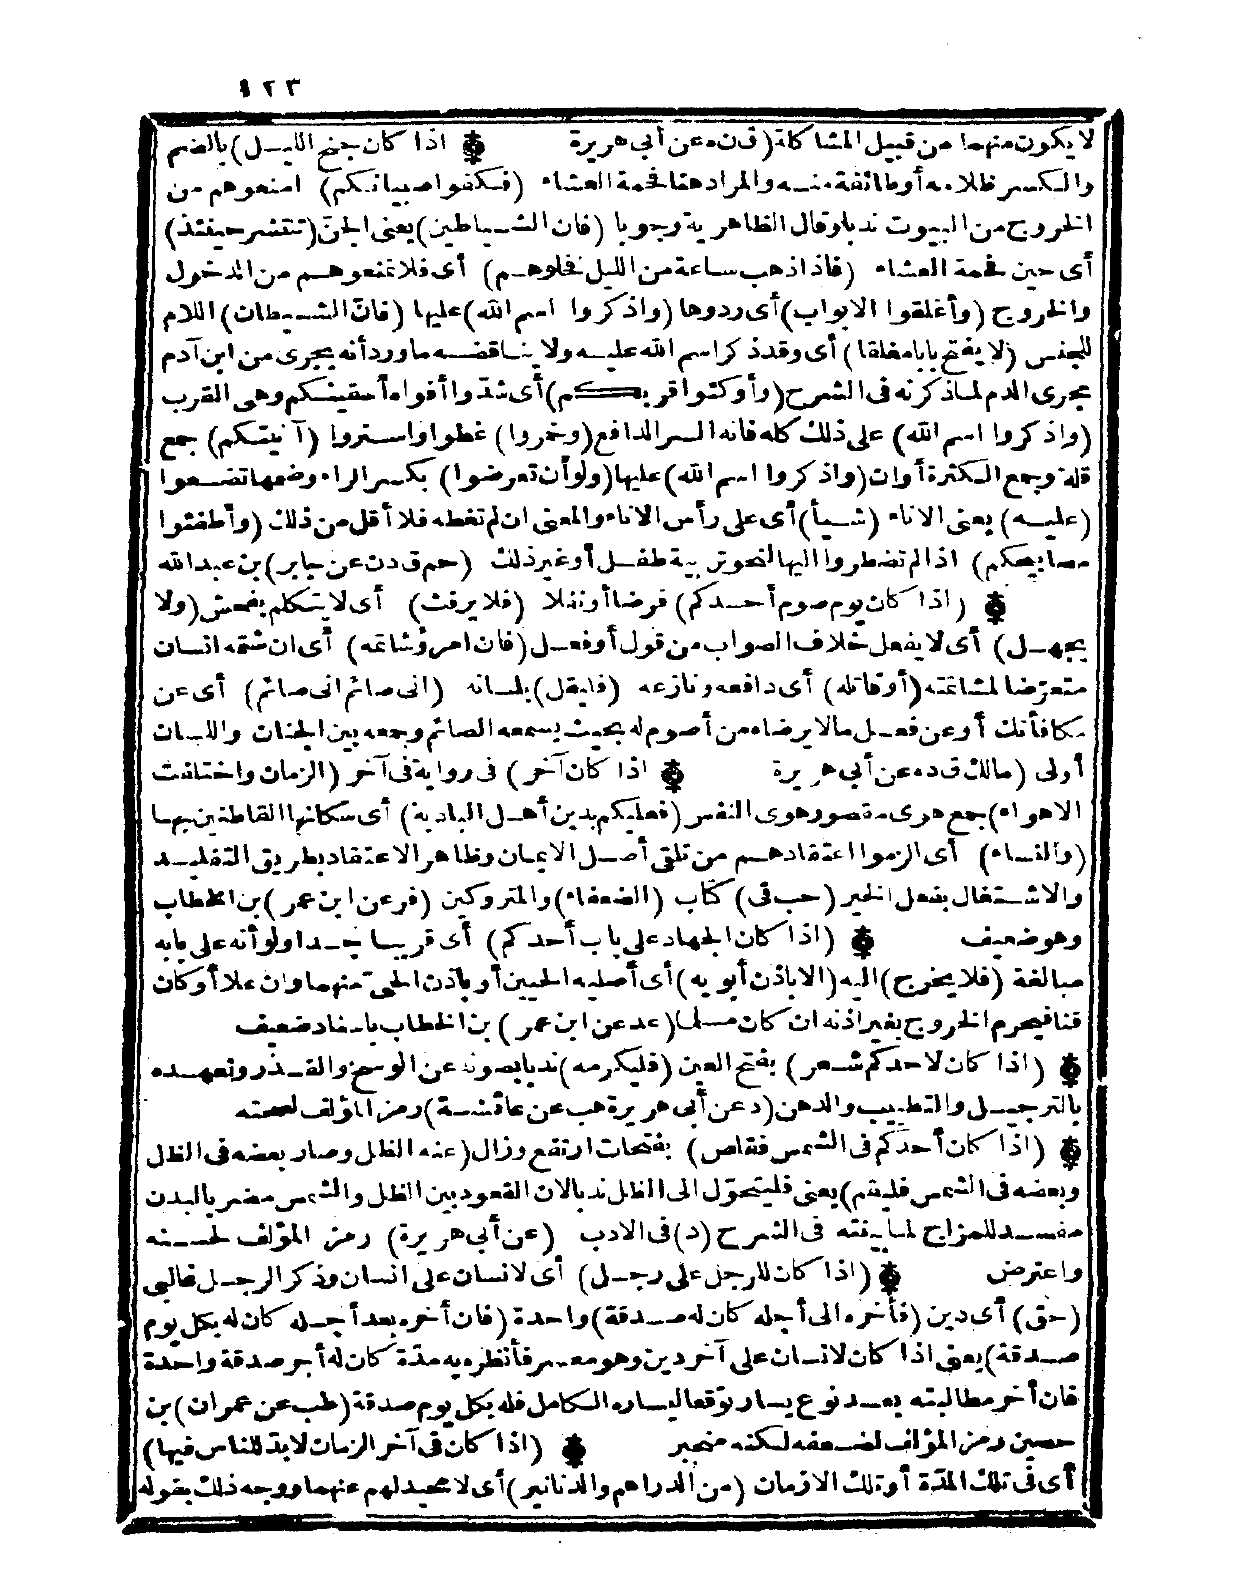 ١٢٣
لا يكون منهما من قبيل المشاكلة (ق ن ه عن أبي هريرة اذا كان جنح الليل) بالضم
والكسر ظلامه أو طائفة منه والمراد هنا فحمة العشاء (فكفوا صبيانكم) امنعوهم من
الخروج من البيوت ندبا وقال الظاهرية وجوبا (فان الشياطين) يعنى الجن (تنتشر حينئذ)
أى حين فحمة العشاء (فاذا ذهب ساعة من الليل فخلوهم) أى فلا تمنعوهم من الدخول
والخروج (وأغلقوا الابواب) أى ردوها (واذكروا اسم الله) عليها (فانّ الشيطان) اللام
للجنس (لا يفتح بابا مغلقا) أى وقد ذكر اسم الله عليه ولا يناقضه ما ورد أنه يجرى من ابن آدم
مجرى الدم لما ذكرته فى الشرح (وأوكئوا قربكم) أى شدّوا أفواه أسقيتكم وهى القرب
(واذكروا اسم الله) على ذلك كله فانه السر الدافع (وخمروا) غطوا واستروا (آنيتكم) جمع
قلة وجمع الكثرة أوان (واذكروا اسم الله) عليها (ولو أن تعرضوا) بكسر الراء وضمها تضعوا
(عليه) يعنى الاناء (شيأ) أى على رأس الاناء والمعنى ان لم تغطه فلا أقل من ذلك (وأطفئوا
مصابيحكم) اذا لم تضطروا اليها لنحو تربية طفل أو غير ذلك (حم ق د ن عن جابر) بن عبد الله
(اذا كان يوم صوم أحدكم) فرضا أو نفلا (فلا يرفث) أى لا يتكلم بفحش (ولا
يجهل) أى لا يفعل خلاف الصواب من قول أو فعل (فان امرؤ شاتمه) أى ان شتمه انسان
متعرّضا لمشاتمته (أو قاتله) أى دافعه ونازعه (فليقل) بلسانه (انى صائم انى صائم) أى عن
مكافأتك أو عن فعل مالا يرضاه من أصوم له بحيث يسمعه الصائم وجمعه بين الجنان واللسان
أولى (مالك ق د ه عن أبي هريرة اذا كان آخر) فى رواية فى آخر (الزمان واختلفت
الاهواء) جمع هوى مقصور هوى النفس (فعليكم بدين أهل البادية) أى سكانها القاطنين بها
(والنساء) أى الزموا اعتقادهم من تلقى أصل الايمان وظاهر الاعتقاد بطريق التقليد
والاشتغال بفعل الخير (حب فى) كتاب (الضعفاء) والمتروكين (فر عن ابن عمر) بن الخطاب
وهو ضعيف (اذا كان الجهاد على باب أحدكم) أى قريبا جدا ولو أنه على بابه
مبالغة (فلا يخرج) اليه (الا باذن أبويه) أى أصليه الحيين أو باذن الحىّ منهما وان علا أو كان
قنا فيحرم الخروج بغير اذنه ان كان مسلما (عد عن ابن عمر) بن الخطاب باسناد ضعيف
(اذا كان لاحدكم شعر) بفتح العين (فليكرمه) ندبا بصونه عن الوسخ والقذر وتعهده
بالترجيل والتطييب والدهن (د عن أبي هريرة هب عن عائشة) رمز المؤلف لصحته
(اذا كان أحدكم فى الشمس فقلص) بفتحات ارتفع وزال (عنه الظل وصار بعضه فى الظل
وبعضه فى الشمس فليقم) يعنى فليتحوّل الى الظل ندبا لان القعود بين الظل والشمس مضر بالبدن
مفسد للمزاج لما بينته فى الشرح (د) فى الادب (عن أبي هريرة) رمز المؤلف لحسنه
واعترض (اذا كان للرجل على رجل) أى لانسان على انسان وذكر الرجل غالبى
(حق) أى دين (فأخره الى أجله كان له صدقة) واحدة (فان أخره بعد أجله كان له بكل يوم
صدقة) يعنى اذا كان لانسان على آخر دين وهو معسر فأنظره به مدّة كان له أجر صدقة واحدة
فان أخر مطالبته بعد نوع يسار توقعا ليساره الكامل فله بكل يوم صدقة (طب عن عمران) بن
حصين رمز المؤلف لضعفه لكنه منجبر (اذا كان فى آخر الزمان لابد للناس فيها)
أى فى تلك المدّة أو تلك الازمان (من الدراهم والدنانير) أى لا محيد لهم عنهما ووجه ذلك بقوله